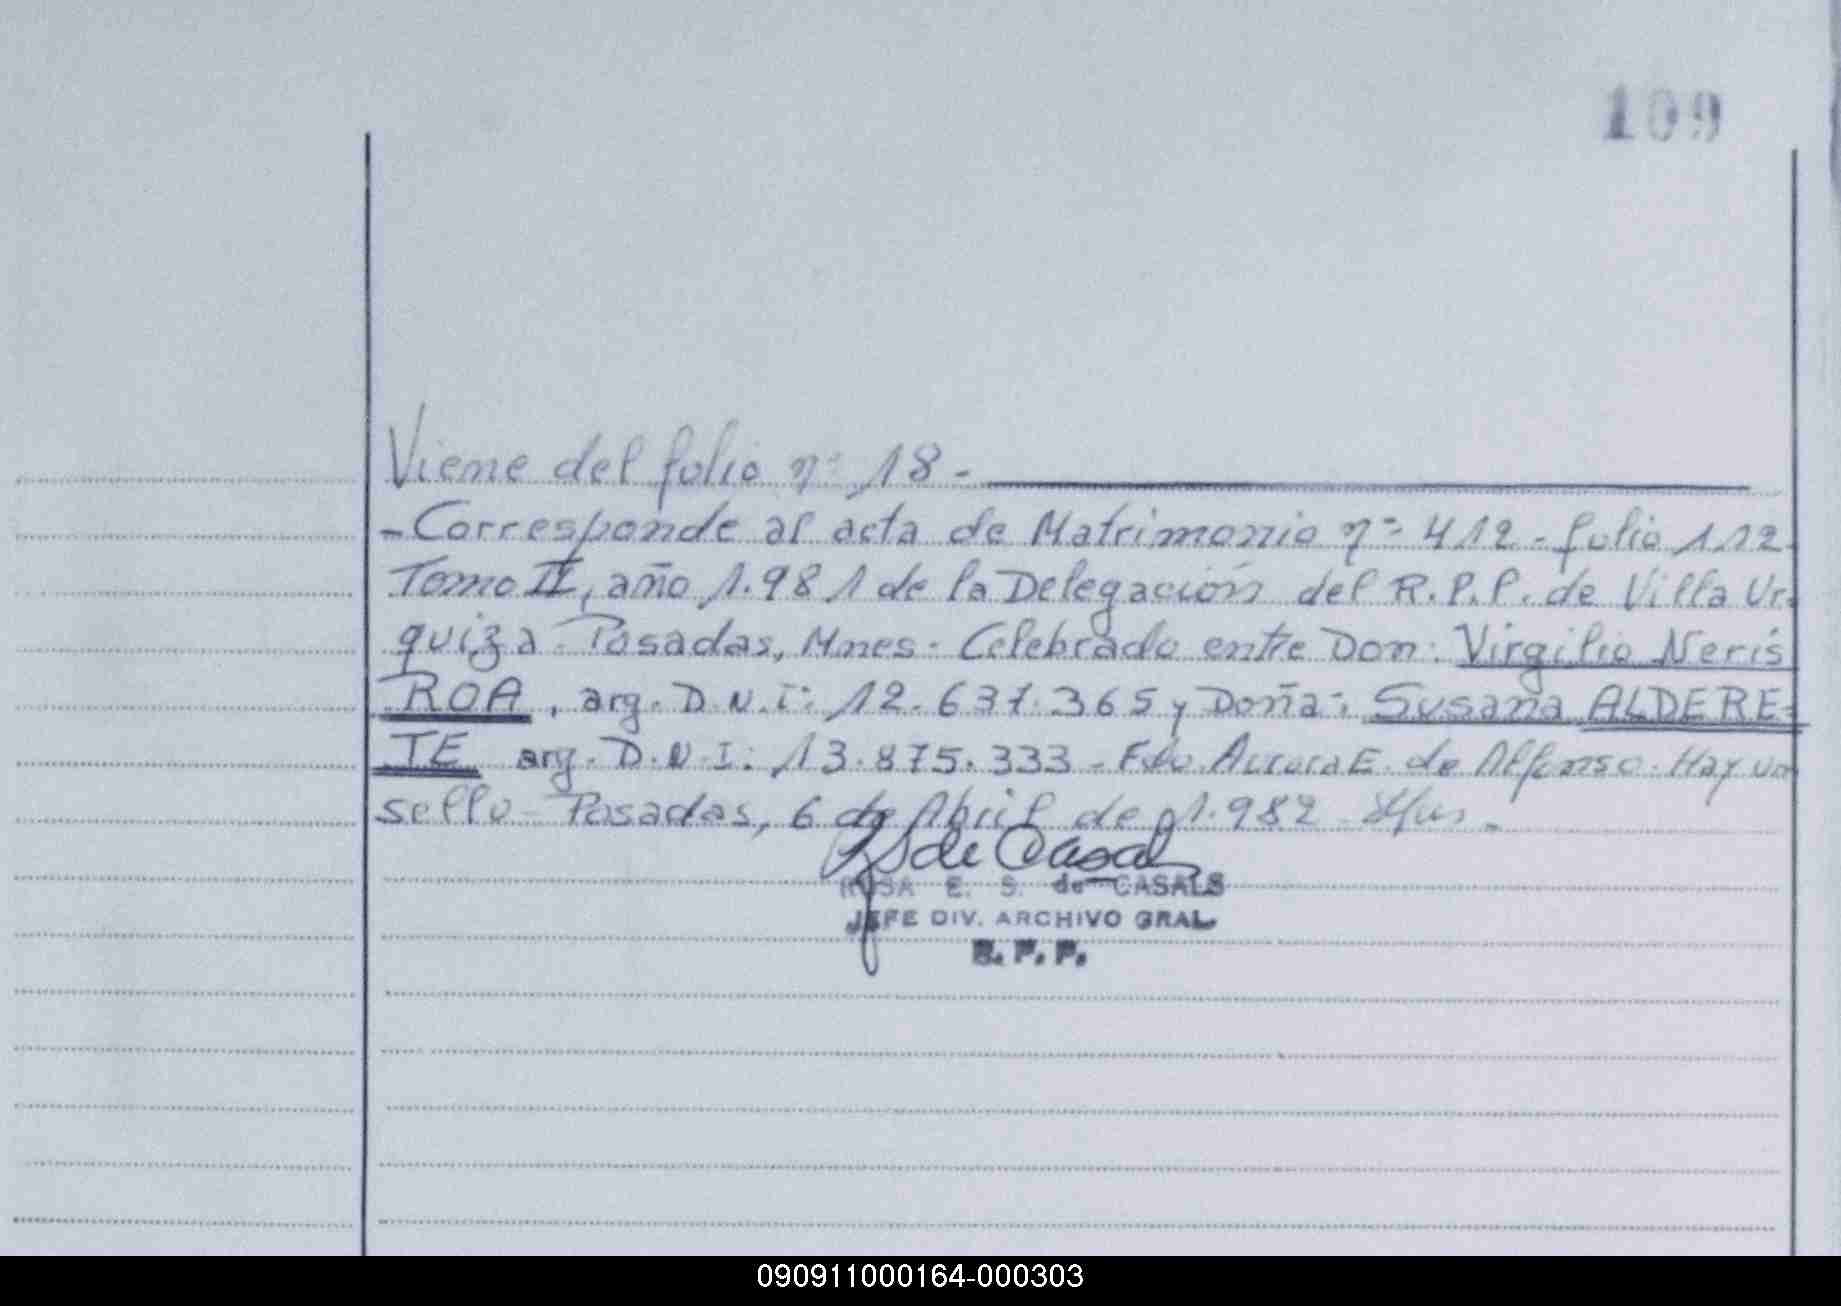 109
Viene del folio nº 18 -
- Corresponde al acta de Matrimonio nº 412 - folio 112
Tomo II, año 1.981 de la Delegación del R.P.P. de Villa Ur-
quiza - Posadas, Mnes - Celebrado entre Don: Virgilio Neris
ROA, arg. D.N.I: 12.637.365 y Doña: Susana ALDERE-
TE arg. D.N.I: 13.875.333 - Fdo. Aurora E. de Alfonso. Hay un
sello - Posadas, 6 de Abril de 1.982
de Casals
ROSA E. S. de CASALS
JEFE DIV. ARCHIVO GRAL.
R. P. P.
090911000164-000303